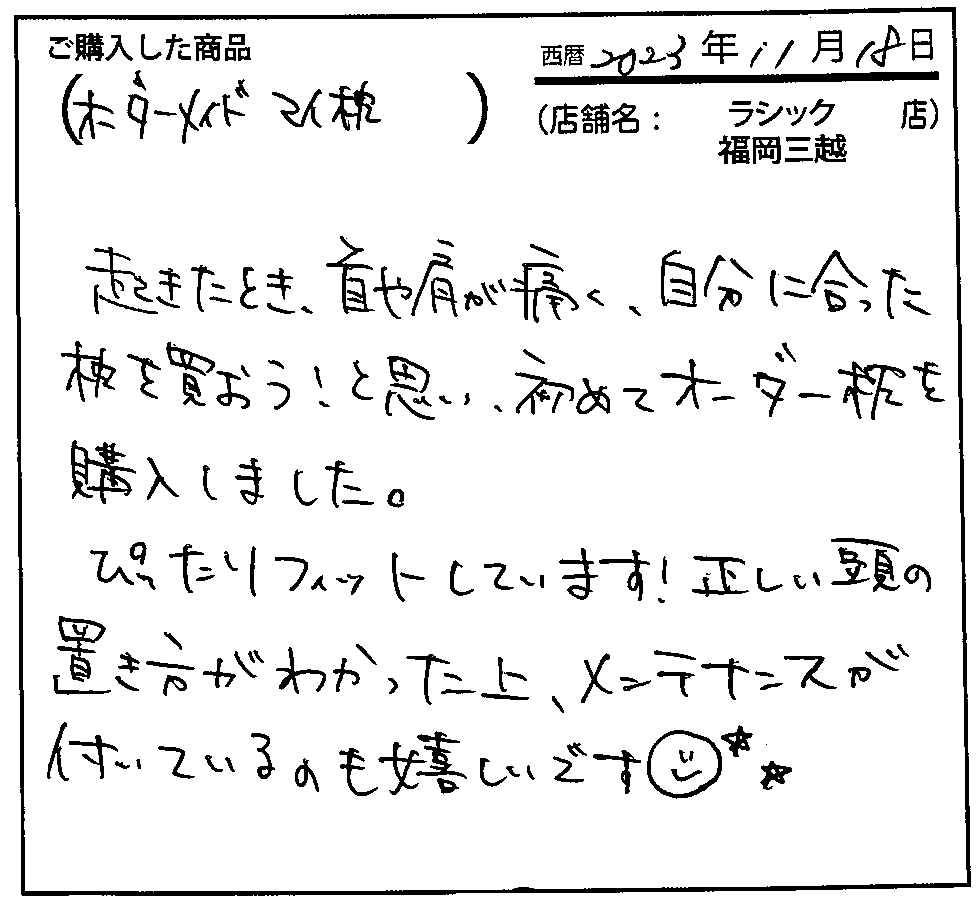 ご購入した商品
(オーダーメイド マイ枕 )
西暦 2023 年 11 月 18 日
(店舗名： ラシック 福岡三越 店)
起きたとき、首や肩が痛く、自分に合った
枕を買おう！と思い、初めてオーダー枕を
購入しました。
ぴったりフィットしています！正しい頭の
置き方がわかった上、メンテナンスが
付いているのも嬉しいです☺☆☆